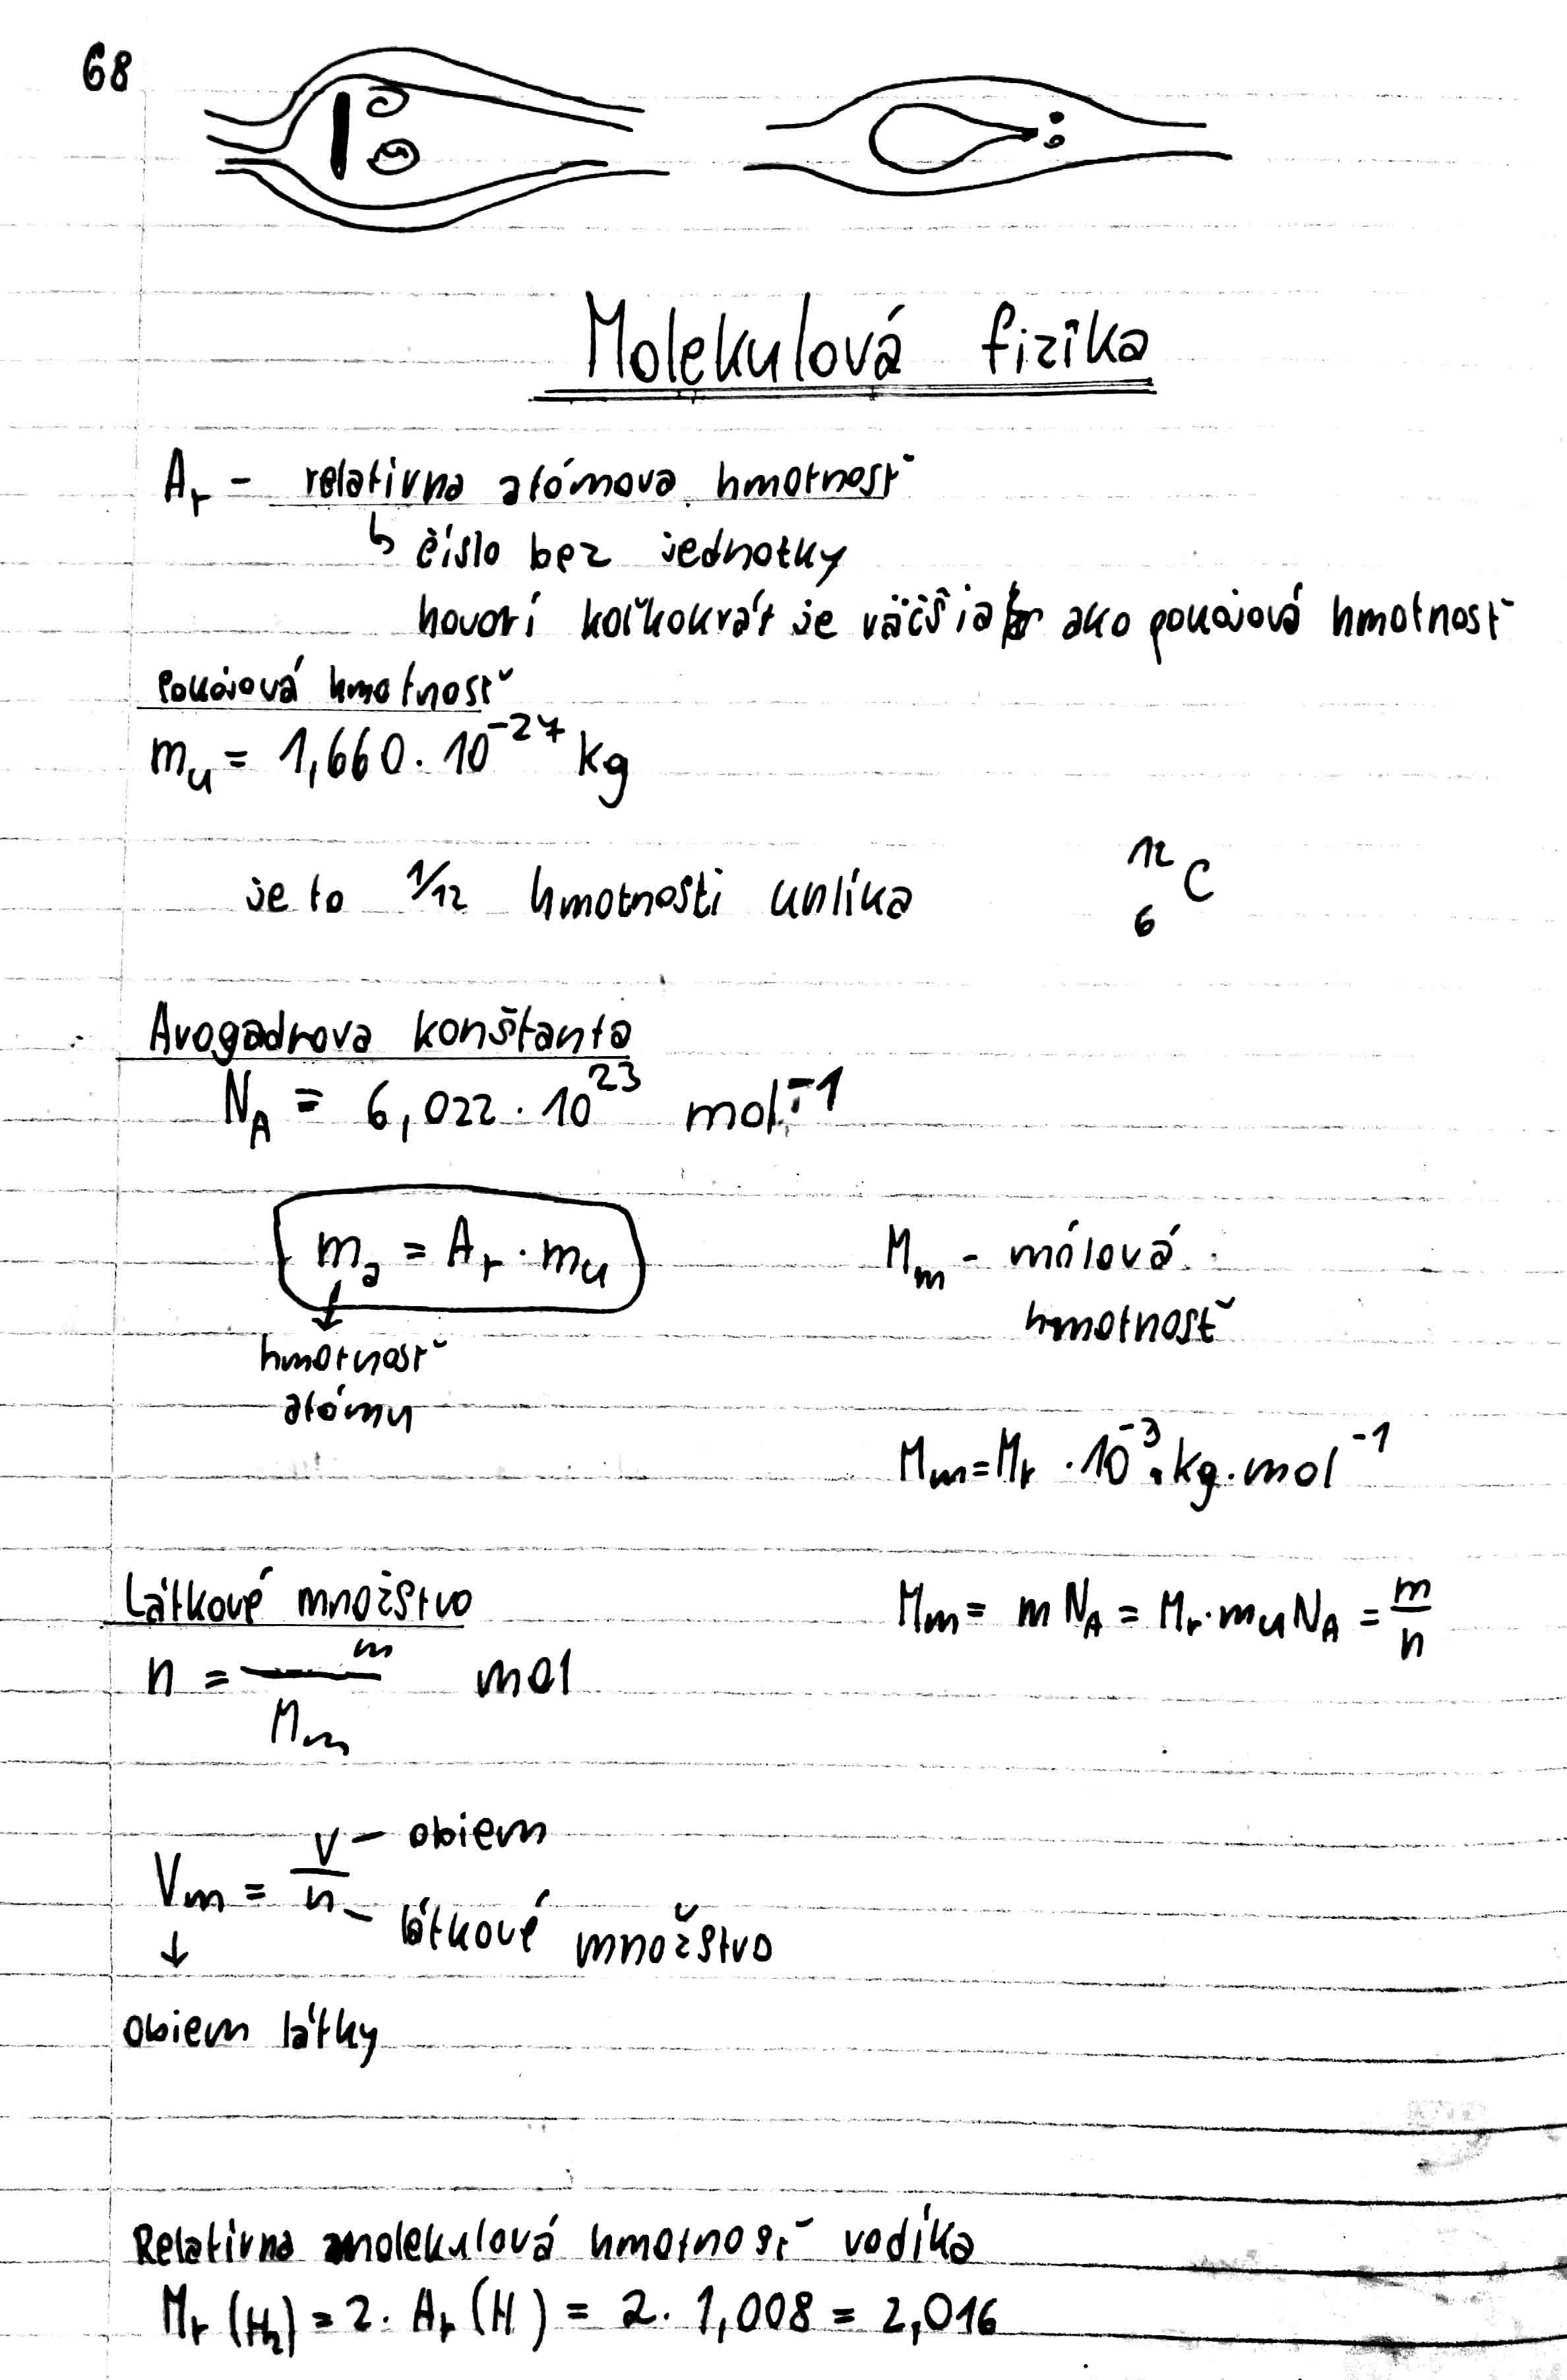 68
Molekulová fizika
Ar - relatívna atómova hmotnosť
↳ číslo bez jednotky
hovorí koľkokrát je väčšia ako pokojová hmotnosť
Pokojová hmotnosť
mu = 1,660 . 10⁻²⁷ kg
je to 1/12 hmotnosti uhlíka ¹²₆C
Avogadrova konštanta
N_A = 6,022 . 10²³ mol⁻¹
ma = Ar . mu
↓
hmotnosť
atómu
Mm - mólová
hmotnosť
Mm = Mr . 10⁻³ . kg . mol⁻¹
Mm = m N_A = Mr . mu N_A = m/n
Látkové množstvo
n = m/Mm mol
Vm = V/n
V – obiem
n – látkové množstvo
↓
obiem látky
Relatívna molekulová hmotnosť vodíka
Mr (H₂) = 2 . Ar (H) = 2 . 1,008 = 2,016